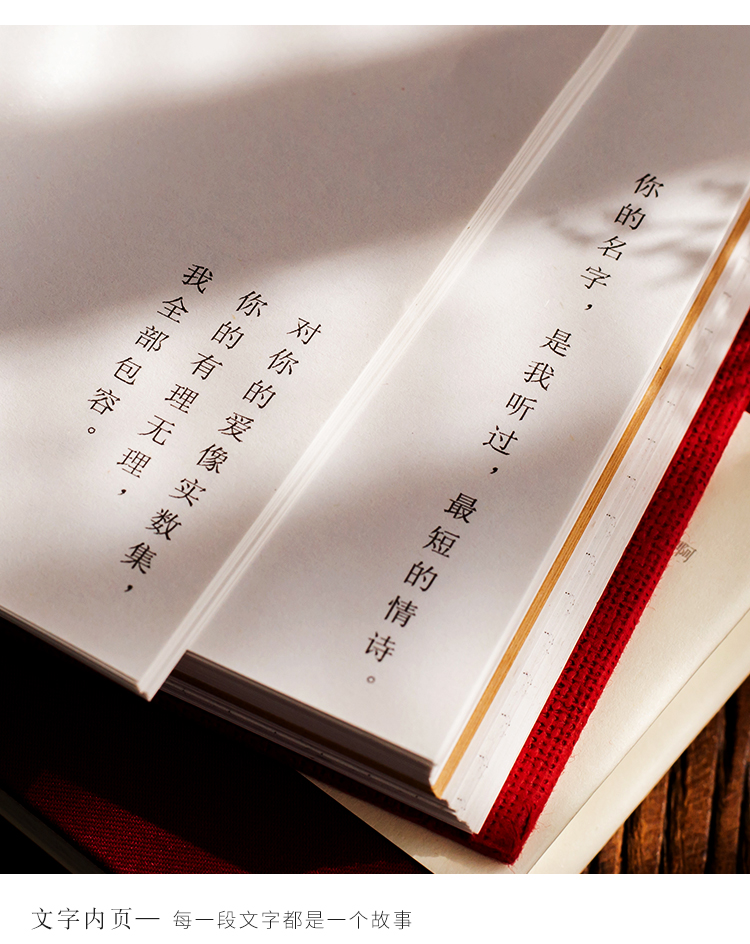 对你的爱像实数集，
你的有理无理，
我全部包容。
你的名字，是我听过，最短的情诗。
啊
文字内页— 每一段文字都是一个故事